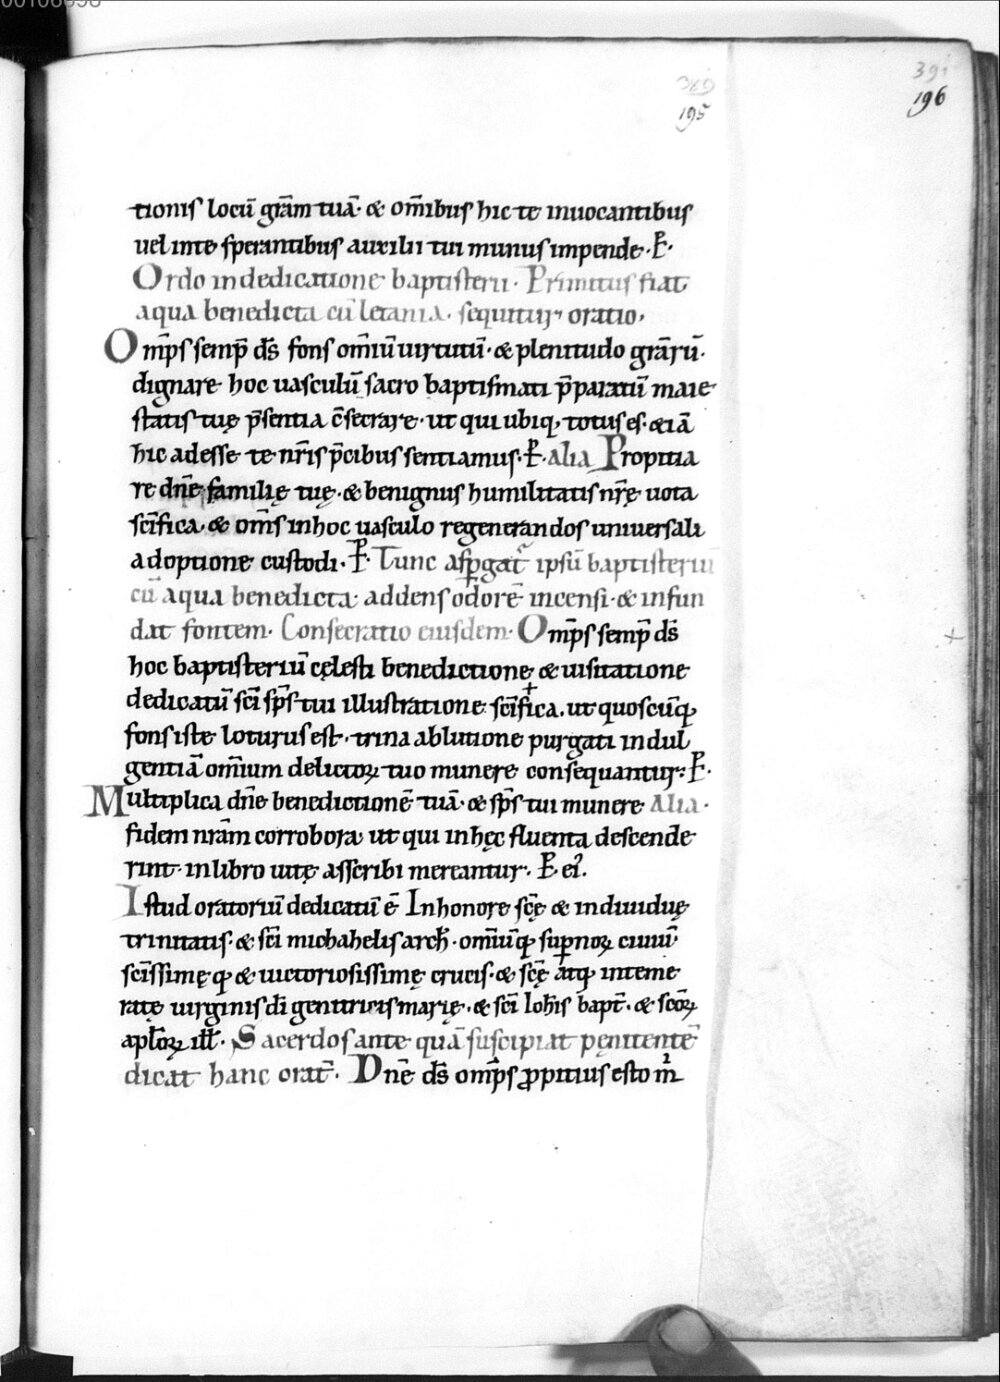 389
195
391
196
tionis locū grām tuā· & om̄ibus hic te inuocantibus
uel inte sperantibus auxilii tui munus impende·P·
Ordo in dedicatione baptisterii· Primitus fiat
aqua benedicta cū letania· sequitur oratio·
Om̄ps semp̄ ds̄ fons om̄iū uirtutū· & plenitudo grārū·
dignare hoc uasculū sacro baptismati p̄paratū maie
statis tuę p̄sentia c̄secrare· ut qui ubiq; totus es· etiā
hic adesse te nr̄is p̄cibus sentiamus·P· alia Propitia
re dn̄e familię tuę· & benignus humilitatis nr̄ę uota
sc̄ifica· & om̄s inhoc uasculo regenerandos uniuersali
adoptione custodi·P· Tunc asꝑgat̄ ipsū baptisteriū
cū aqua benedicta· addens odorē incensi· & infun
dat fontem· Consecratio eiusdem· Om̄ps semp̄ ds̄
hoc baptisteriū cęlesti benedictione & uisitatione
dedicatū sc̄i sp̄s tui illustratione sc̄ifica· ut quoscūq;
fons iste loturus est· trina ablutione purgati indul
gentiā om̄ium delictoꝝ tuo munere consequantur· P·
Multiplica dn̄e benedictionē tuā· & sp̄s tui munere Alia·
fidem nrām corrobora ut qui in hęc fluenta descende
rint· in libro uitę asscribi mereantur· P
Istud oratoriū dedicatū ē Inhonore sc̄ę & indiuiduę
trinitatis· & sc̄i michahelis arch̄· om̄iūq; suꝑnoꝝ ciuiū
sc̄issimęq; & uictoriosissimę crucis· & sc̄ę atq; inteme
ratę uirginis dī genitricis marię· & sc̄i Ioh̄is bapt̄· & sc̄oꝝ
apl̄oꝝ ill̄· Sacerdos ante quā suscipiat pęnitentē
dicat hanc orat̄· Dn̄e ds̄ om̄ps ꝓpitius esto m̄